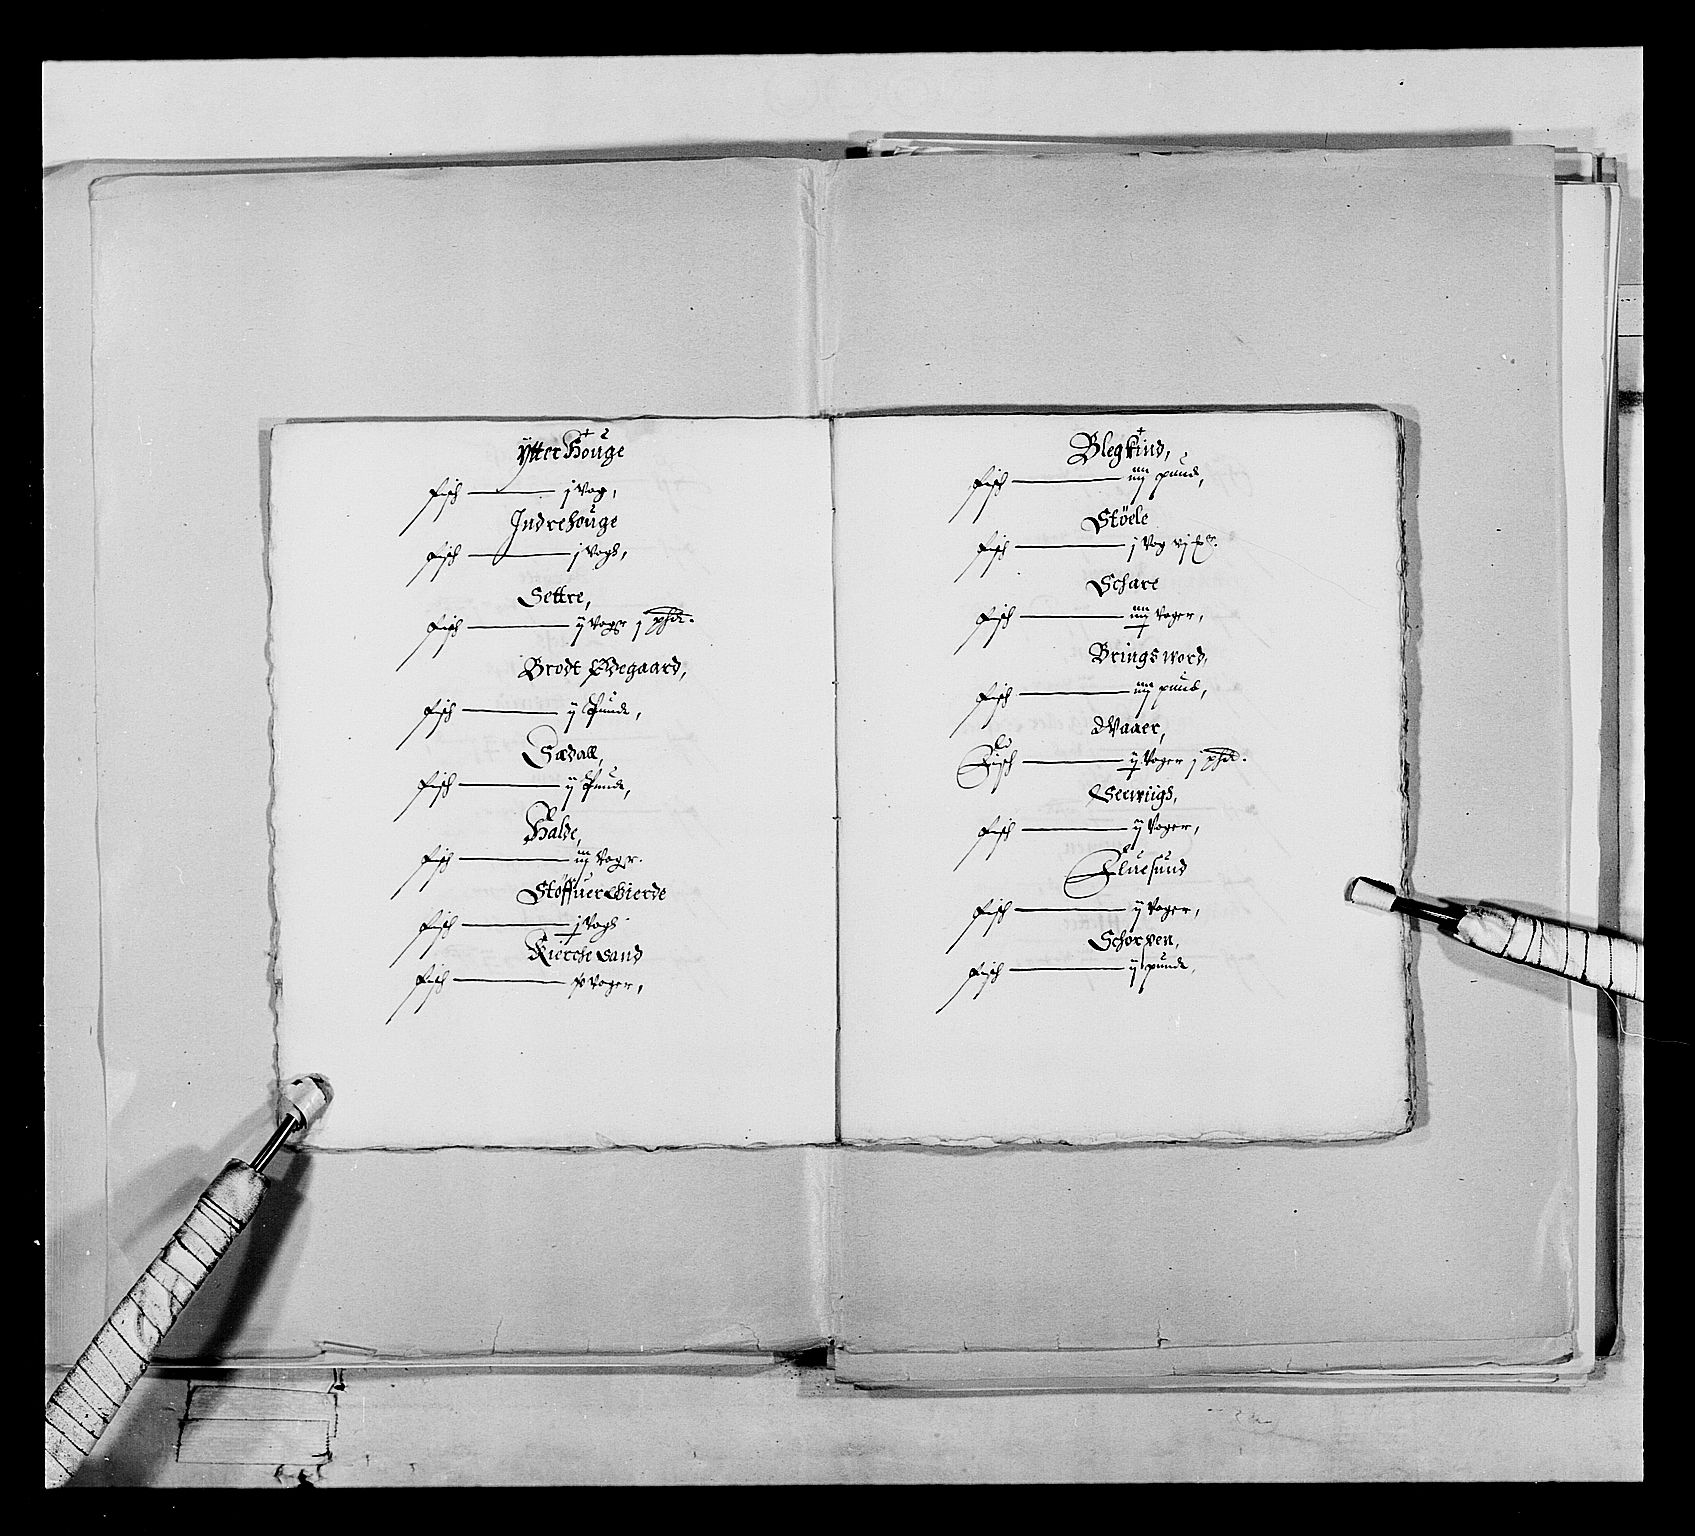 Ytter Houge
fisch — j Vog,
Indrehouge
fisch — j Vogh,
Settre,
fisch — ij Vogr j
Brodt Ødegaard,
fisch — ij Punde,
Sædall,
fisch — ij Punde,
Halde,
fisch — iiij Vogr.
fisch — j Vogh
Kierche Sand
fisch — Voger,
Blegkind,
fisch — iiij pund,
Støele
fisch — j Vog vj
Schare
fisch — iiij Voger,
Bringsword,
fisch — iiij pund,
Waaer,
Fisch — ij Voger j
fisch — ij Voger,
Fluesund
fisch — ij Voger,
Schorpen,
fisch — ij punde,